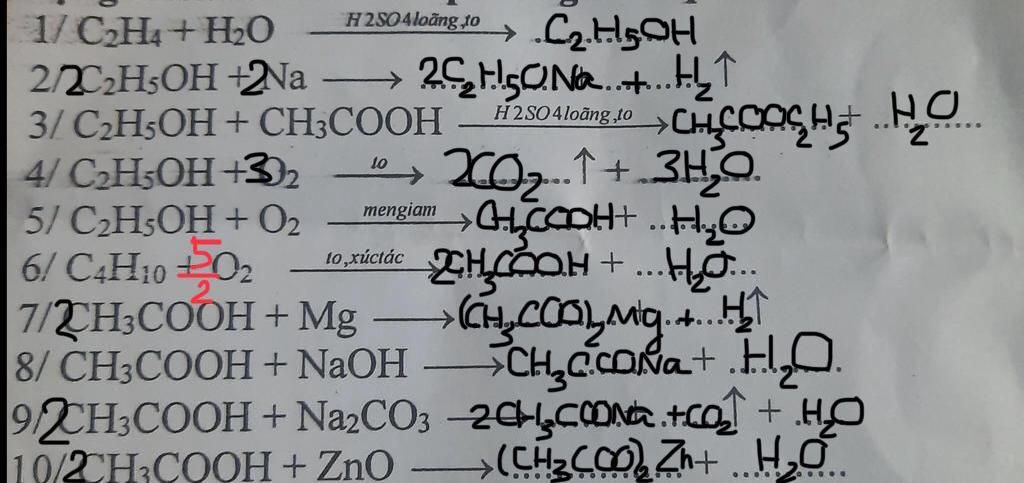 1/ C2H4 + H2O H2SO4loãng,to C2H5OH
2/ 2C2H5OH + 2Na → 2C2H5ONa + H2↑
3/ C2H5OH + CH3COOH H2SO4loãng,to → CH3COOC2H5 + H2O
4/ C2H5OH + 3O2 to → 2CO2 ↑ + 3H2O
5/ C2H5OH + O2 mengiam → CH3COOH + H2O
6/ C4H10 + 5/2 O2 to,xúctác → 2CH3COOH + H2O
7/ 2CH3COOH + Mg → (CH3COO)2Mg + H2↑
8/ CH3COOH + NaOH → CH3COONa + H2O
9/ 2CH3COOH + Na2CO3 → 2CH3COONa + CO2↑ + H2O
10/ 2CH3COOH + ZnO → (CH3COO)2Zn + H2O